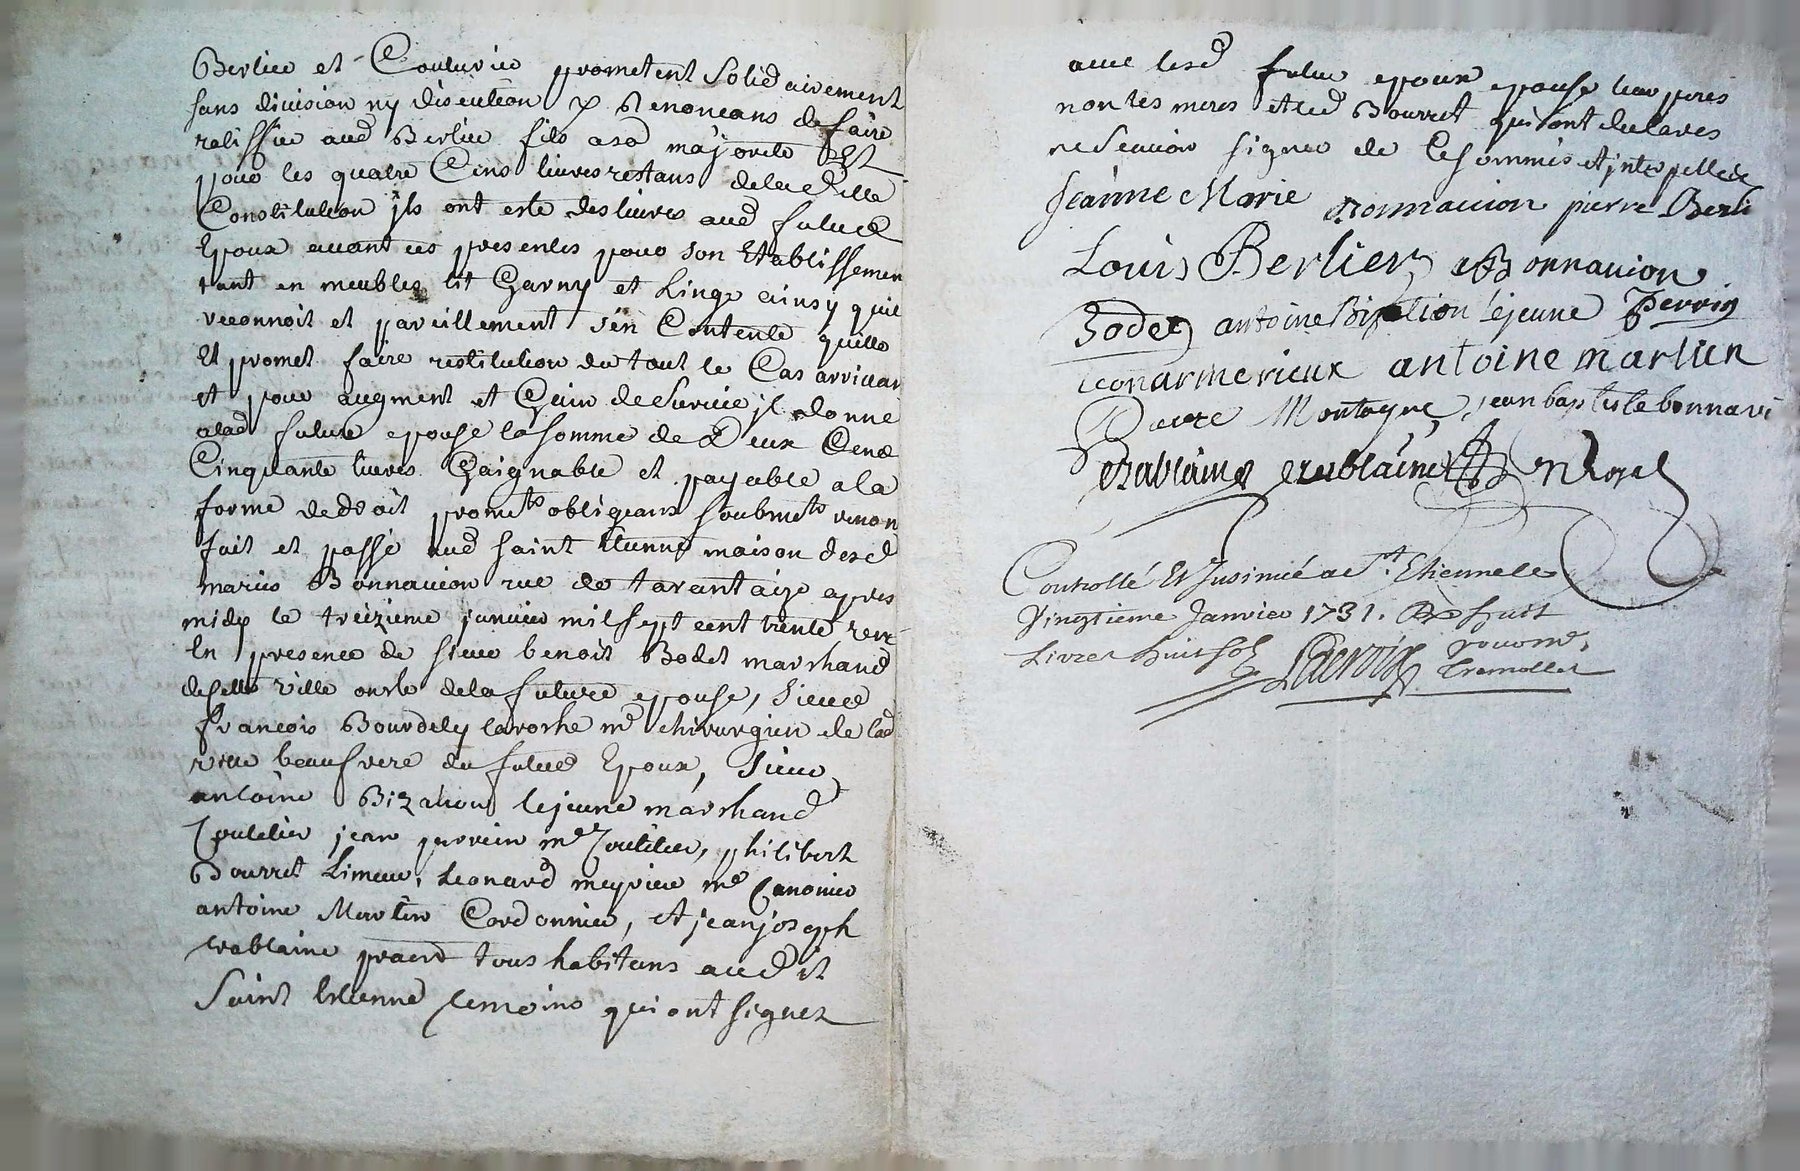 Berlier et Couturier prometent Solidairement
sans division ny discution y Renoncans de faire
ratiffier aud Berlier fils a sa majorité Et
pour les quatre Cens livres restans de lad
Constitution ils ont esté deslivres aud futur
Epoux avant ces presentes pour son Establissemen
tant en meubles lit Garny et Linge ainsy quil
reconnoit et pareillement s'en Contente quitte
Et promet faire restitution du tout le Cas arrivan
et pour augment et Gain de Survie il donne
alad future epouse la somme de Deux Cens
Cinquante livres Gaignable et payable a la
forme de droit promets obligeans soubmets renon
fait et passé aud saint Etienne maison desd
mariés Bonnavion rue de tarantaize apres
midy le treizieme janvier mil sept cent trente
En presence de sieur benoit Bodet marchand
de ville oncle de la future epouse, Sieur
françois Bourdely laroche me chirurgien de lad
ville beaufrere du futur Epoux, Sieur
antoine Bizalion le jeune marchand
Coutelier jean perrin me Coutelier, philibert
Bourret Limeur, Leonard meyrieu me Canonier
antoine Martin Cordonnier, et jean joseph
trablaine praend tous habitans aud it
Saint Etienne temoins qui ont signez
avec lesd futur epoux epouse leur peres
non les meres et led Bourret qui ont declares
ne scavoir signer de Ce sommés et interpellés
Jeanne Marie Bonnauion pierre Berli
Louis Berlier Bonnauion
Bodet antoine Bizalion lejeune Perrin
leonar merieux antoine martien
Montagne, jean baptiste bonnavi
trablaine trablaine
Controllé Et Insinué a St. Etienne le
Vingtieme Janvier 1731. Rx huit
Livres huit sols Lacroix pour Mr.
Tremollet